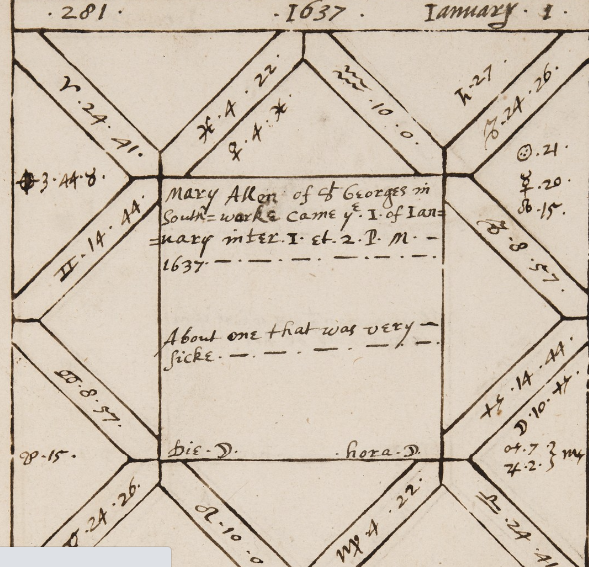 · 281 · · 1637 · Ianuary · 1 ·
♈ · 24 · 41 ·
♓ · 4 · 22 ·
♀ · 4 · ♓
♒ · 10 · 0 ·
♄ · 27 ·
♑ · 24 · 26 ·
☉ · 21 ·
☿ · 20 ·
☊ · 15 ·
3 · 44 · ♉ ·
♊ · 14 · 44 ·
♑ · 8 · 57 ·
Mary Allen of St Georges in
South= warke came ye · 1 · of Ian=
=uary inter · 1 · et · 2 · P. M · –
1637 · – · – · – · –
About one that was very –
sicke · – · – · – · –
die · ☽ · · hora · ☽ ·
♋ · 8 · 57 ·
☋ · 15 ·
24 · 26 ·
♌ · 10 · 0
♍ · 4 · 22 ·
♐ · 14 · 44 ·
☽ · 10 · ♐ ·
♂ · 7 · } ♏
♃ · 2 · }
♎ · 24 · 41